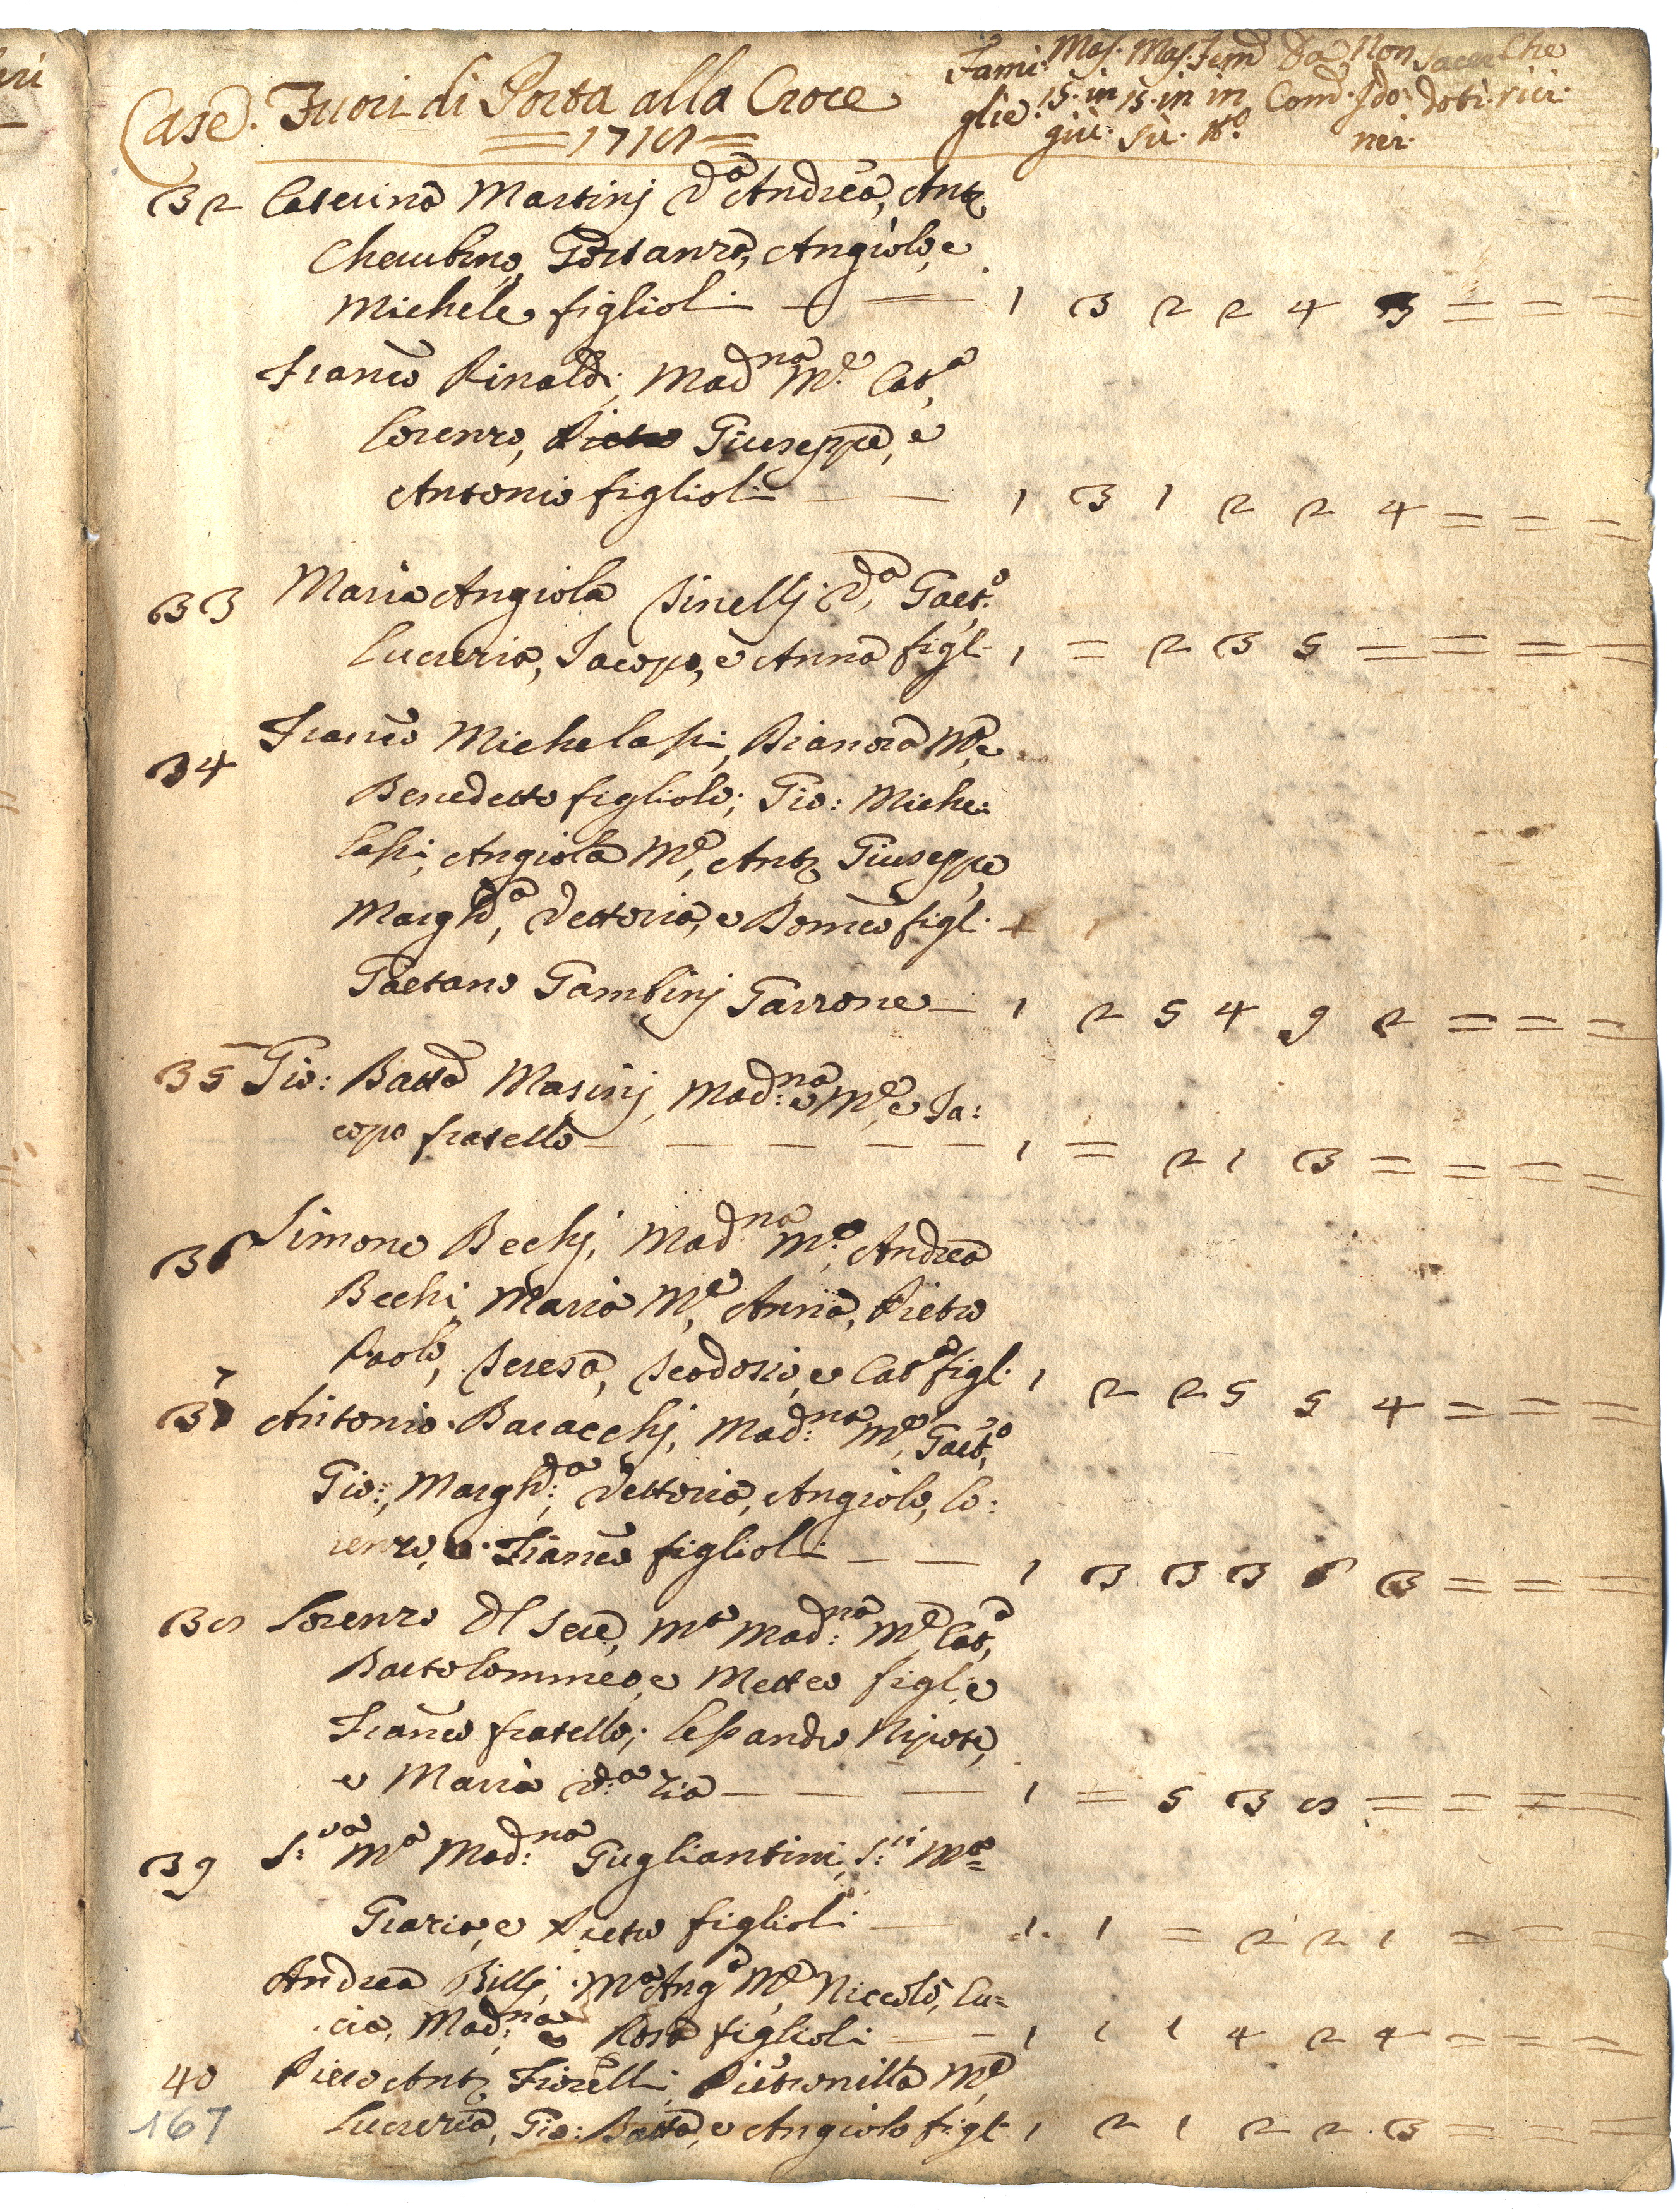 Case. Fuori di Porta alla Croce
Fami: Mas. Mas. Fem̃ Da Non Sacer Che
glie. 15. in 15. in in Com̃. Ido: doti. rici:
giù: sù. nei.
32 Caterina Martinj Andrea, Ant.º
Cherubino, Costanza, Angiolo, e
Michele figlioli 1 3 2 2 4 3 = = =
Franc.º Rinaldi, Mad.na M.e Cat.a
Lorenzo, Pietro Giuseppe, e
Antonio figlioli 1 3 1 2 2 4 = = =
33 Maria Angiola Gaet.º
Lucrezia, Jacopo, e Anna figl. 1 = 2 3 5 = = = =
34 Franc.º Michelassi, M.e e
Benedetto figliolo; Gio: Miche:
lassi, Angiola M.e, Ant.º Giuseppe
Margh.a, Vettoria, e Domen.co figl.
Gaetano Gambinj Garzone 1 2 5 4 9 2 = = =
35 Gio: Batta Masinj, Mad.na M.e e Ja:
copo fratello 1 = 2 1 3 = = = =
36 Simone Bechj, Mad.na M.e, Andrea
Bechi, Maria M.e, Anna, Pietro
Paolo, Teresa, Teodosio, e Cat.a figl. 1 2 2 5 5 4 = = =
7
37 Antonio Baracchj, Mad.na M.e, Gaet.º
Gio:, Margh.ta, Vettoria, Angiolo, Lo:
renzo, e Franc.º figlioli 1 3 3 3 6 3 = = =
38 Lorenzo del Sere, M.a Mad.na M.e Cat.a
Bartolommeo, e Matteo figl. e
Franc.º fratello; Lessandro Nipote,
e Maria V.a zia 1 = 5 3 8 = = = =
39 S.ra M.a Mad.na Gugliantini, S.ri M.a
Grazia, e Pietro figlioli 1. 1 = 2 2 1 = = =
Andrea Billj, M.a Ang.a M.e Niccolò, Lu:
cia, Mad.na e Rosa figlioli 1 1 1 4 2 4 = = =
40 Piero Ant.º Fiorelli Pietronilla M.e
167 Lucrezia, Gio: Batta, e Angiolo figl. 1 2 1 2 2 3 = = =